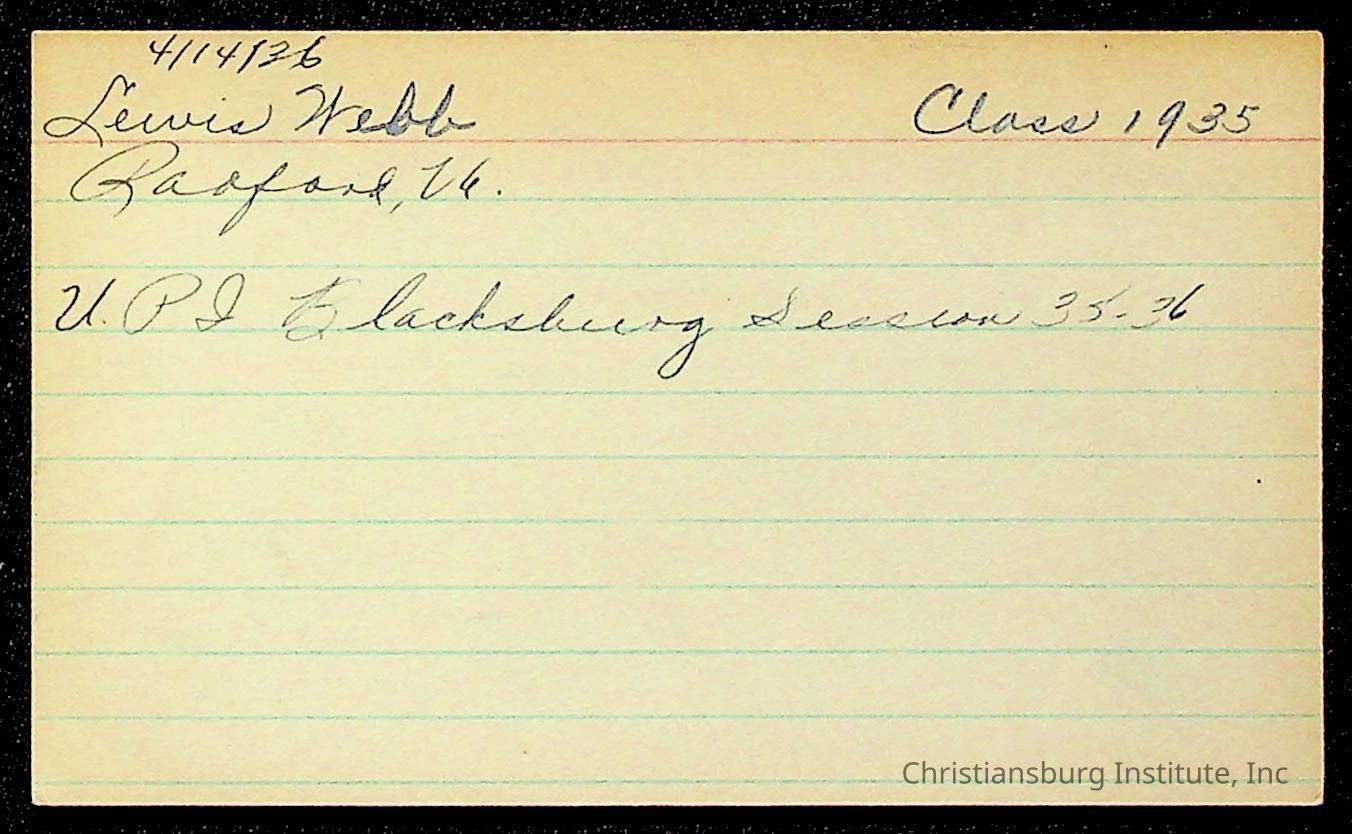 4/14/36
Lewis Webb Class 1935
Radford, Va.
V. P I Blacksburg Session 35-36
Christiansburg Institute, Inc